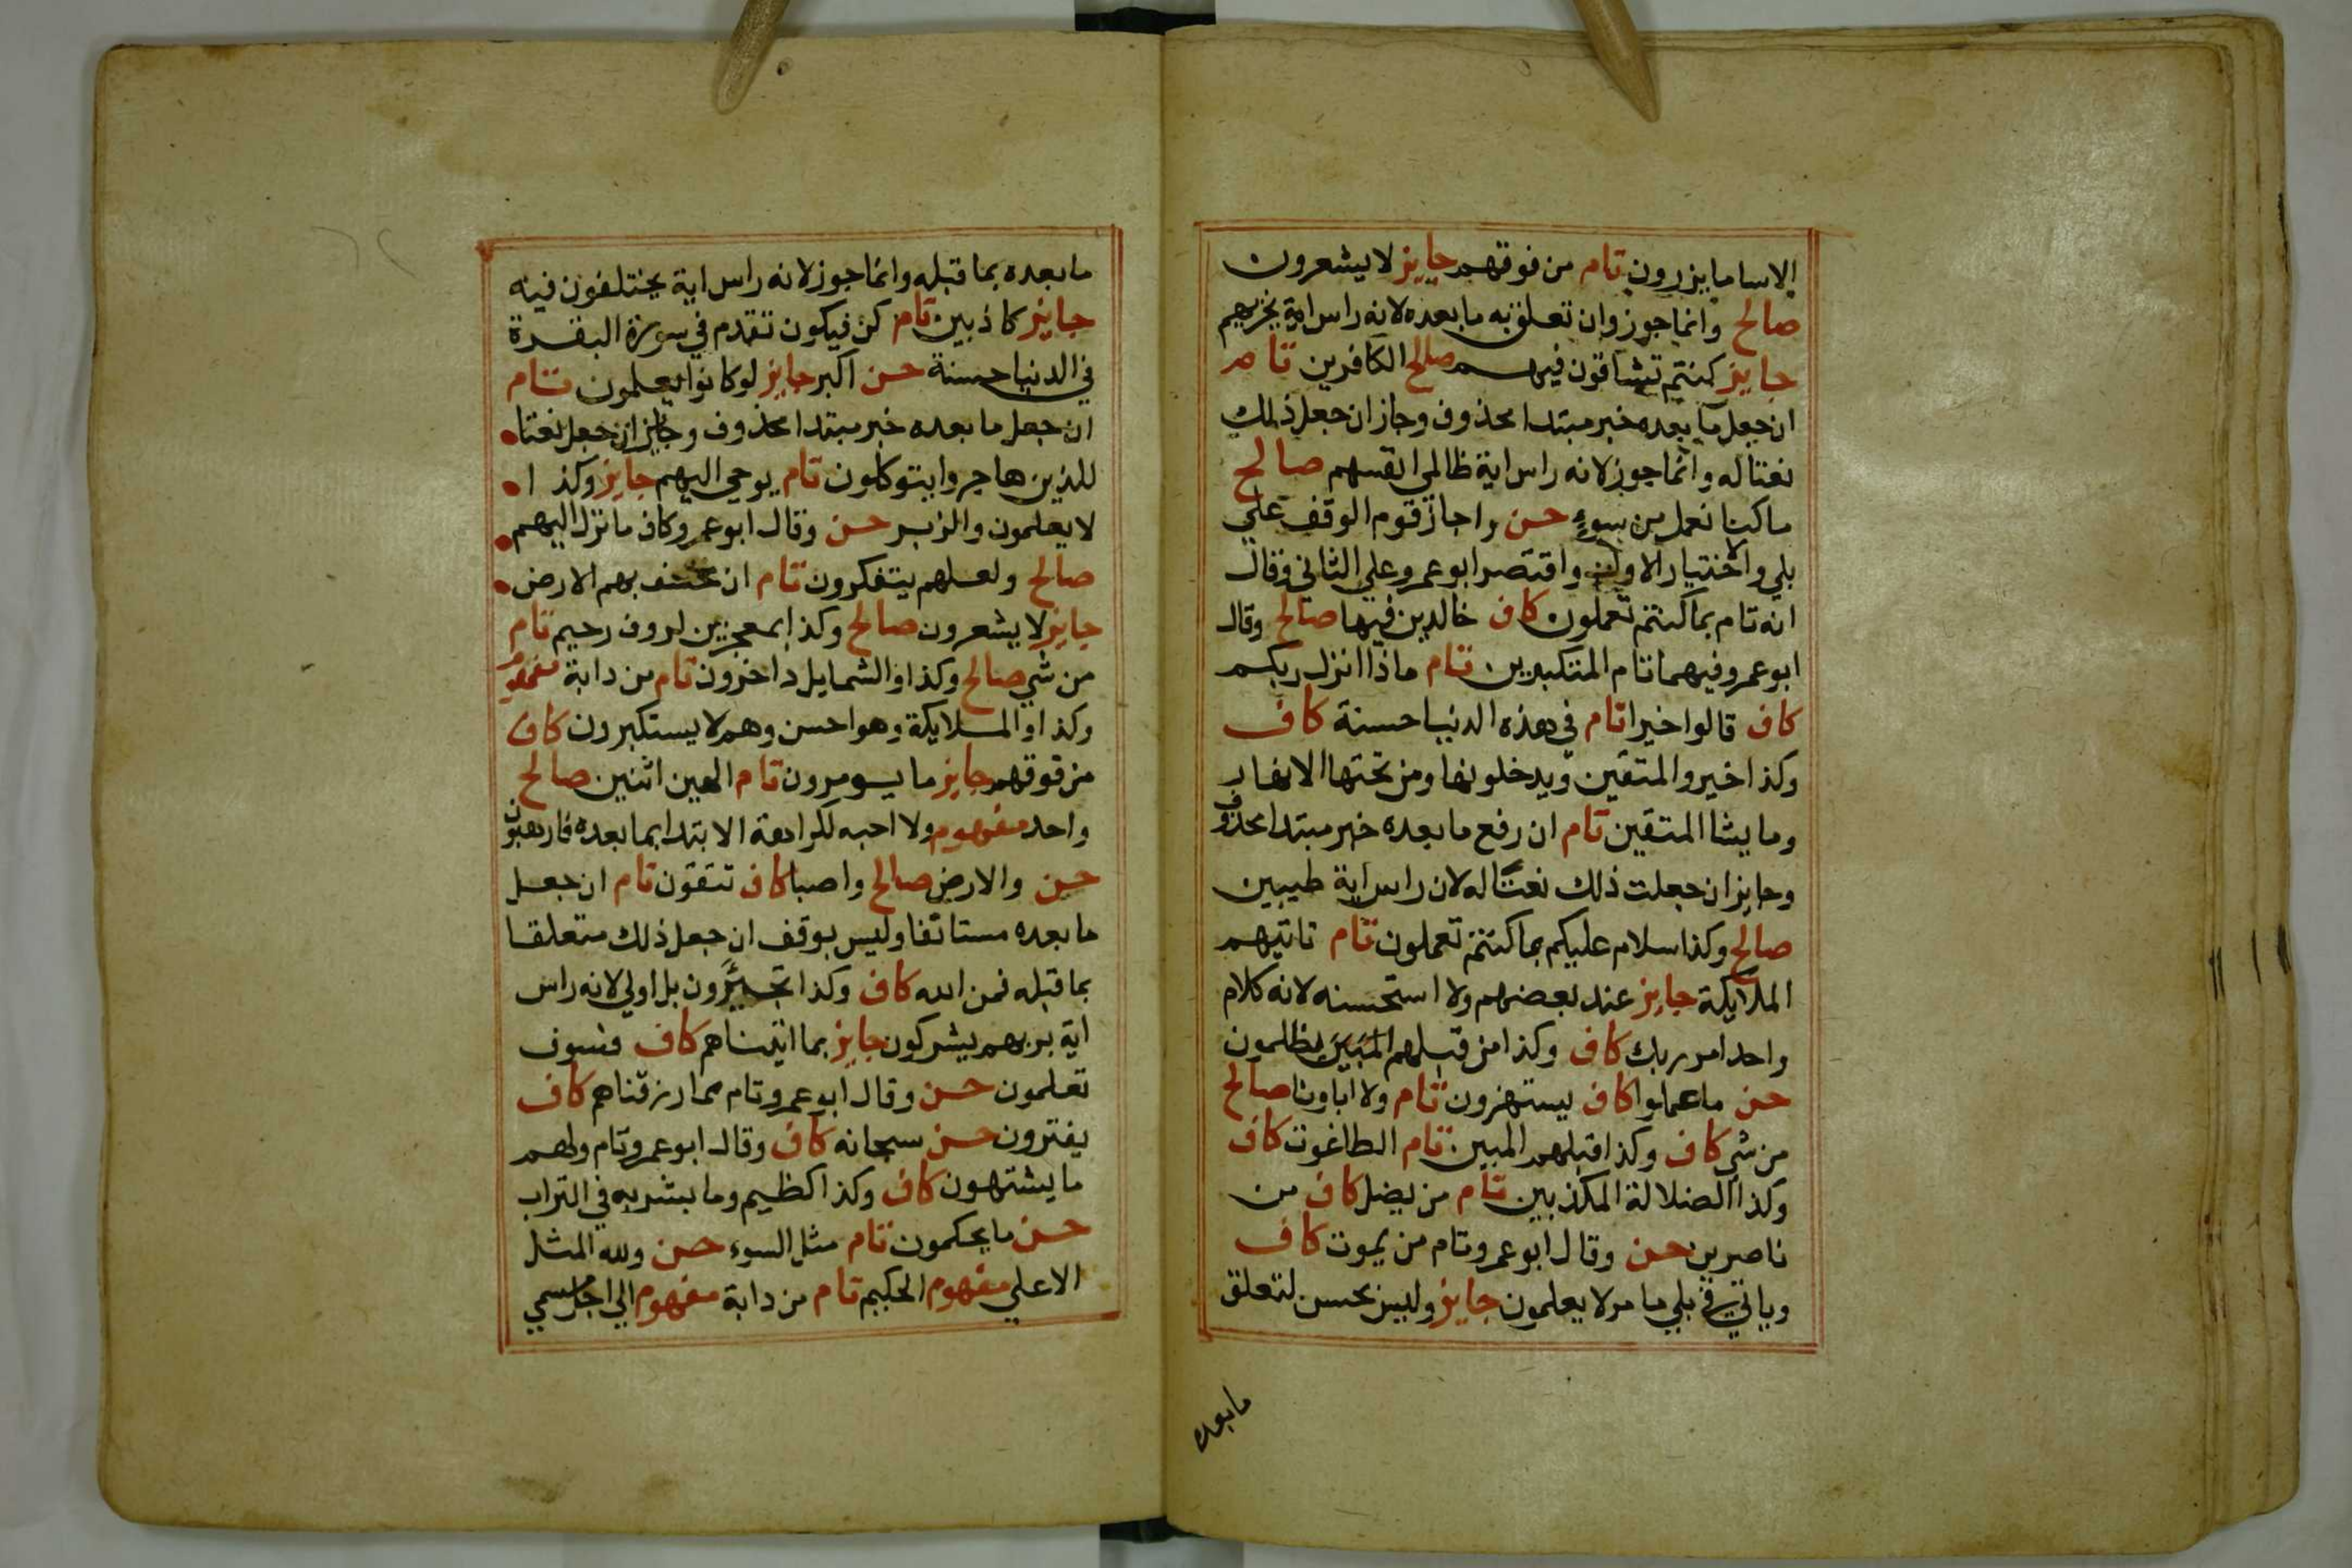 الاساما يزرون تام من فوقهم جايز لا يشعرون
صالح وانما جوز وان تعلق به ما بعده لانه راس اية يخزيهم
جايز كنتم تشاقون فيهم صالح الكافرين تام
ان جعل ما بعده خبر مبتدا محذوف وجاز ان جعل ذلك
نعتا له وانما جوز لانه راس اية ظالمي انفسهم صالح
ما كنا نعمل من سوء حسن واجاز قوم الوقف علي
بلي والاختيار الاول واقتصر ابو عمرو علي الثاني وقال
انه تام بما كنتم تعملون كاف خالدين فيها صالح وقال
ابو عمرو فيهما تام المتكبرين تام ماذا انزل ربكم
كاف قالوا خيرا تام في هذه الدنيا حسنة كاف
وكذا خير والمتقين ويدخلونها ومن تحتها الانهار
وما يشا المتقين تام ان رفع ما بعده خبر مبتدا محذوف
وجايز ان جعلت ذلك نعتا له لان راس اية طيبين
صالح وكذا سلام عليكم بما كنتم تعملون تام تاتيهم
الملايكة جايز عند بعضهم ولا استحسنه لانه كلام
واحد امر ربك كاف وكذا من قبلهم المبين يظلمون
حسن ما عملوا كاف يستهزون تام ولا اباونا صالح
من شي كاف وكذا قبلهم المبين تام الطاغوت كاف
وكذا الضلالة المكذبين تام من يضل كاف من
ناصرين حسن وقال ابو عمرو تام من يموت كاف
وياتي في بلي ما مر لا يعلمون جايز وليس بحسن لتعلق
ما بعده
ما بعده بما قبله وانما جوز لانه راس اية يختلفون فيه
جايز كاذبين تام كن فيكون تقدم في سورة البقرة
في الدنيا حسنة حسن اكبر جايز لو كانوا يعلمون تام
ان جعل ما بعده خبر مبتدا محذوف وجايز ان جعل نعتا
للذين هاجروا يتوكلون تام يوحي اليهم جايز وكذا
لا يعلمون والزبر حسن وقال ابو عمرو كاف ما نزل اليهم
صالح ولعلهم يتفكرون تام ان يخسف بهم الارض
جايز لا يشعرون صالح وكذا بمعجزين لروف رحيم تام
من شي صالح وكذا والشمايل داخرون تام من دابة مفهوم
وكذا والملايكة وهو احسن وهم لا يستكبرون كاف
من فوقهم جايز ما يومرون تام الهين اثنين صالح
واحد مفهوم ولا احبه لكراهة الابتدا بما بعده فارهبون
حسن والارض صالح واصبا كاف تتقون تام ان جعل
ما بعده مستانفا وليس بوقف ان جعل ذلك متعلقا
بما قبله فمن الله كاف وكذا تجئرون بل اولي لانه راس
اية بربهم يشركون جايز بما اتيناهم كاف فسوف
تعلمون حسن وقال ابو عمرو تام مما رزقناهم كاف
يفترون حسن سبحانه كاف وقال ابو عمرو تام ولهم
ما يشتهون كاف وكذا كظيم وما بشر به في التراب
حسن ما يحكمون تام مثل السوء حسن ولله المثل
الاعلي مفهوم الحكيم تام من دابة مفهوم الي اجل مسمي